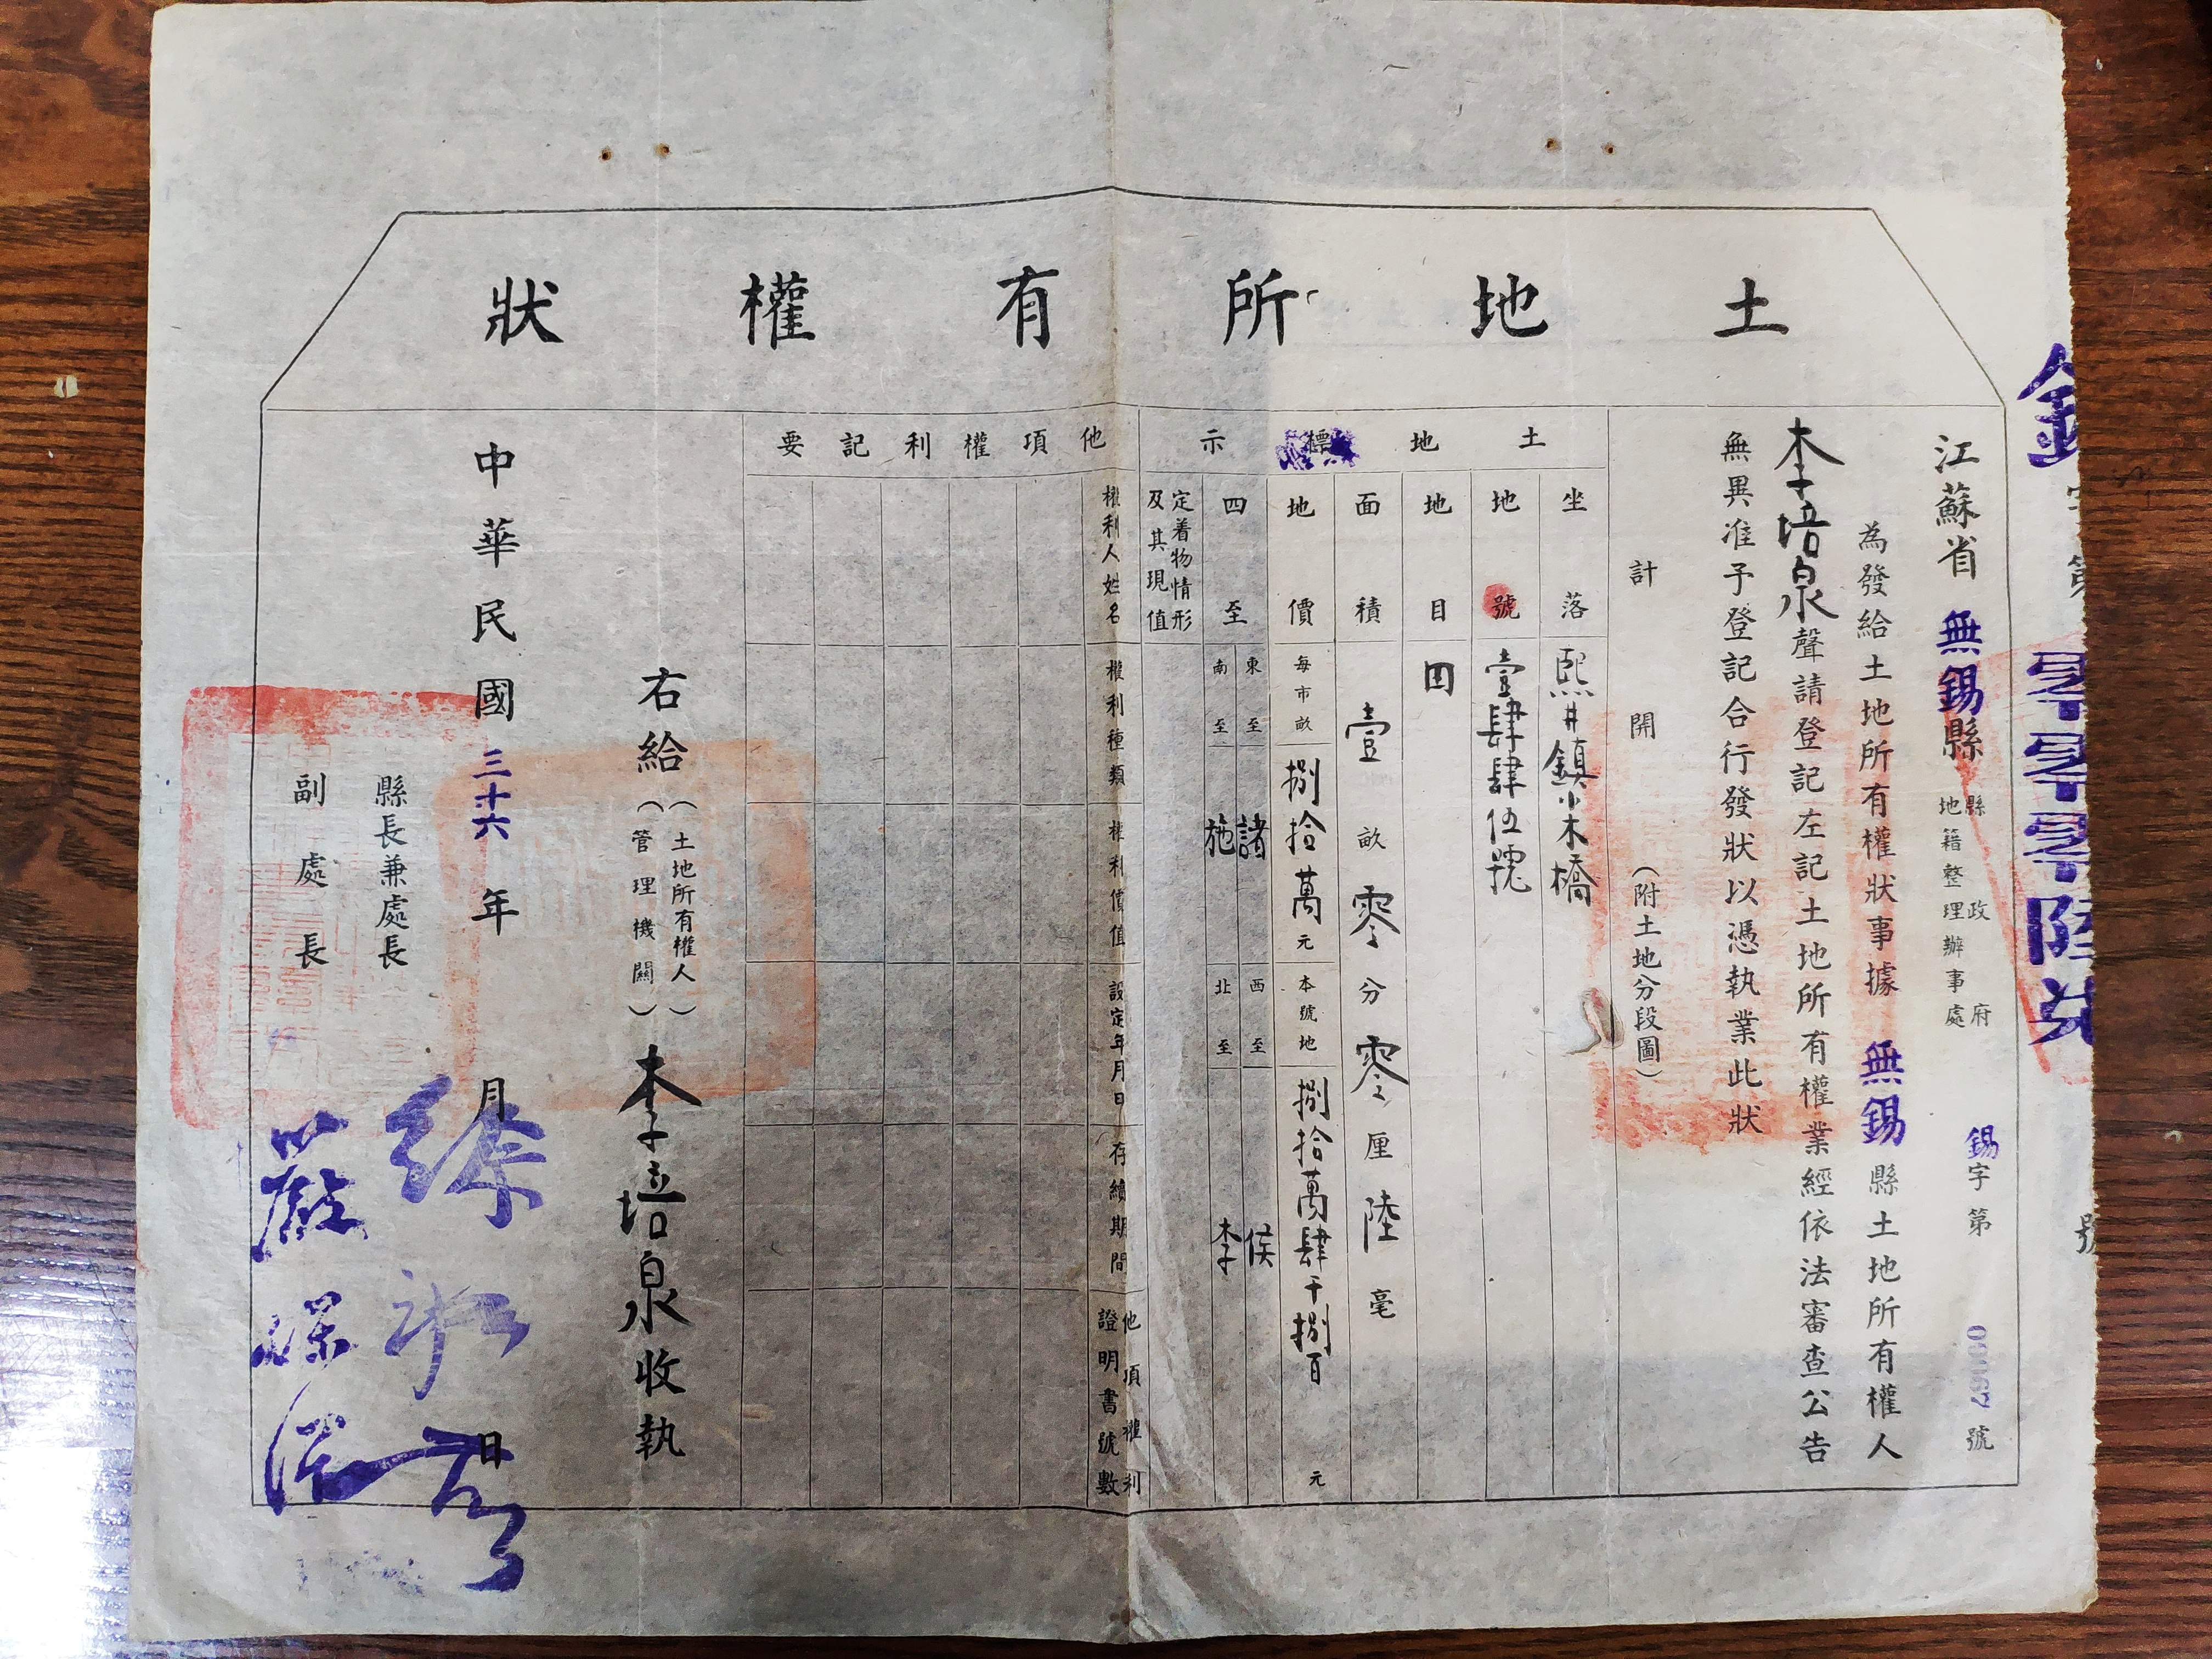 土地所有權狀
錫字第零零零陸柒號
江蘇省無錫縣縣政府
地籍整理辦事處
錫字第00067號
為發給土地所有權狀事據無錫縣土地所有權人
李培泉聲請登記左記土地所有權業經依法審查公告
無異准予登記合行發狀以憑執業此狀
計開(附土地分段圖)
土地標示
坐落 熙井鎮小木橋
地號 壹肆肆伍號
地目
面積 壹畝零分零厘陸毫
地價 每市畝捌拾萬元 本號地捌拾萬肆千捌百元
四至 東至諸 西至侯
南至施 北至李
定着物情形及其現值
他項權利記要
權利人姓名
權利種類
權利價值
設定年月日
存續期間
他項權利證明書號數
右給(土地所有權人)
(管理機關)李培泉收執
中華民國三十六年月日
縣長兼處長徐
副處長嚴保滋